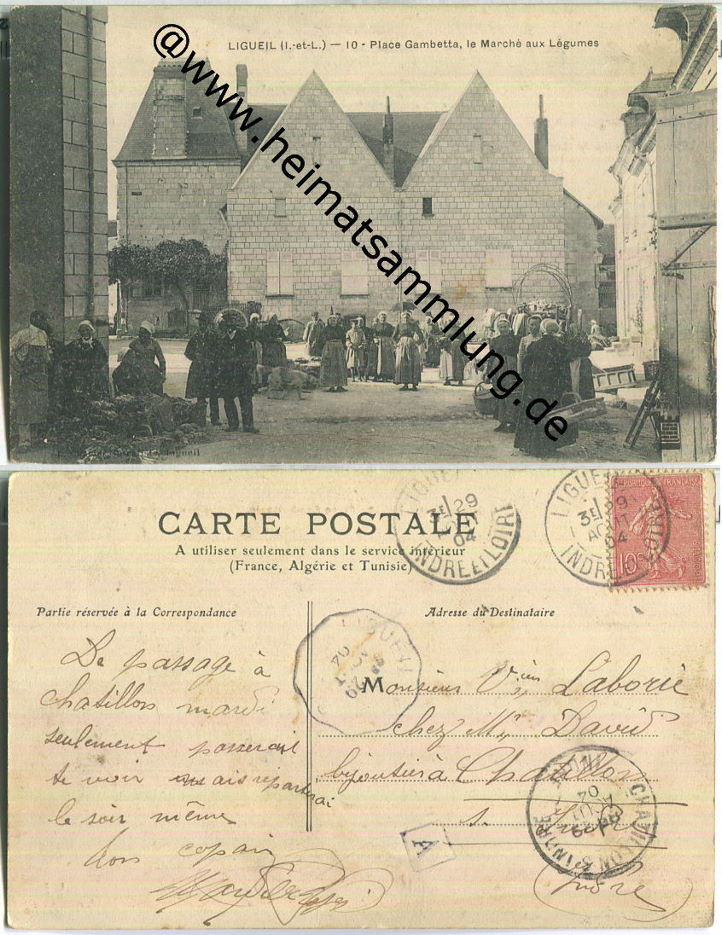 LIGUEIL (I.-et-L.) — 10 - Place Gambetta, le Marché aux Légumes
@www.heimatsammlung.de
CARTE POSTALE
A utiliser seulement dans le service intérieur
(France, Algérie et Tunisie)
LIGUEIL
3E 29
AOUT
04
INDRE ET LOIRE
LIGUEIL
3E 29
AOUT
04
INDRE ET LOIRE
10
Partie réservée à la Correspondance
Adresse du Destinataire
LIGUEIL
De passage à
chatillon mardi
seulement passerai
te voir mais repartirai
le soir même
ton copain
Monsieur Laborie
chez Mr David
bijoutier à Chatillon
s. Indre
(Indre)
CHATILLON S INDRE
A